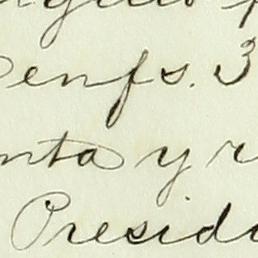 Denfs. 3
nta y r
Presid